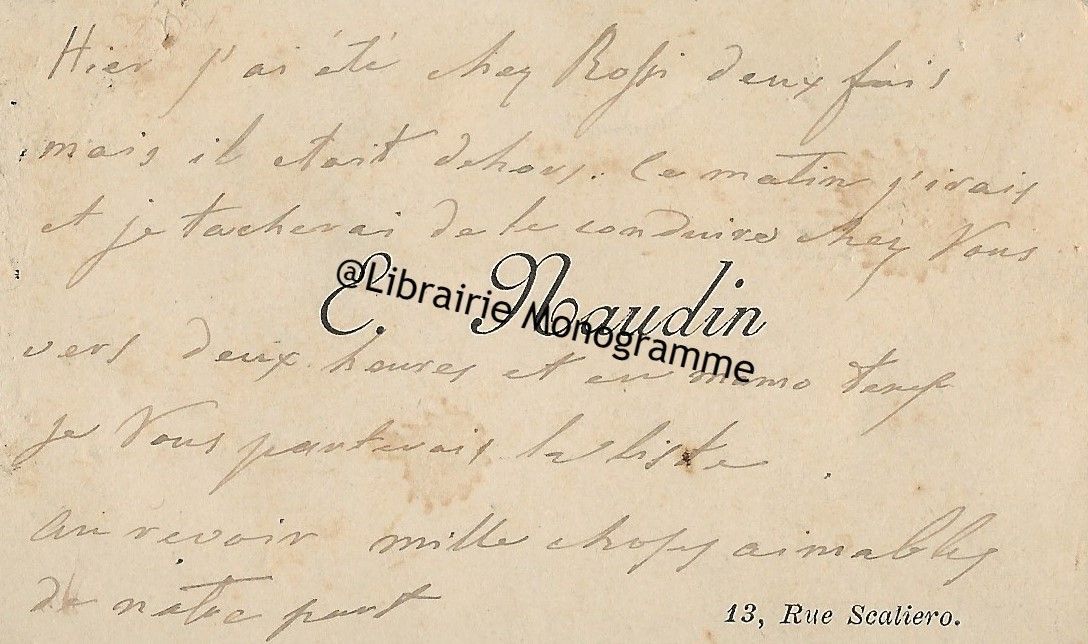 Hier j'ai été chez Rossi deux fois
mais il etait dehors. Ce matin j'irais
et je tacherai de le conduire chez Vous
E. Naudin
@Librairie Monogramme
vers deux heures et en meme temps
je Vous porterais la liste.
au revoir mille choses aimables
de notre part
13, Rue Scaliero.